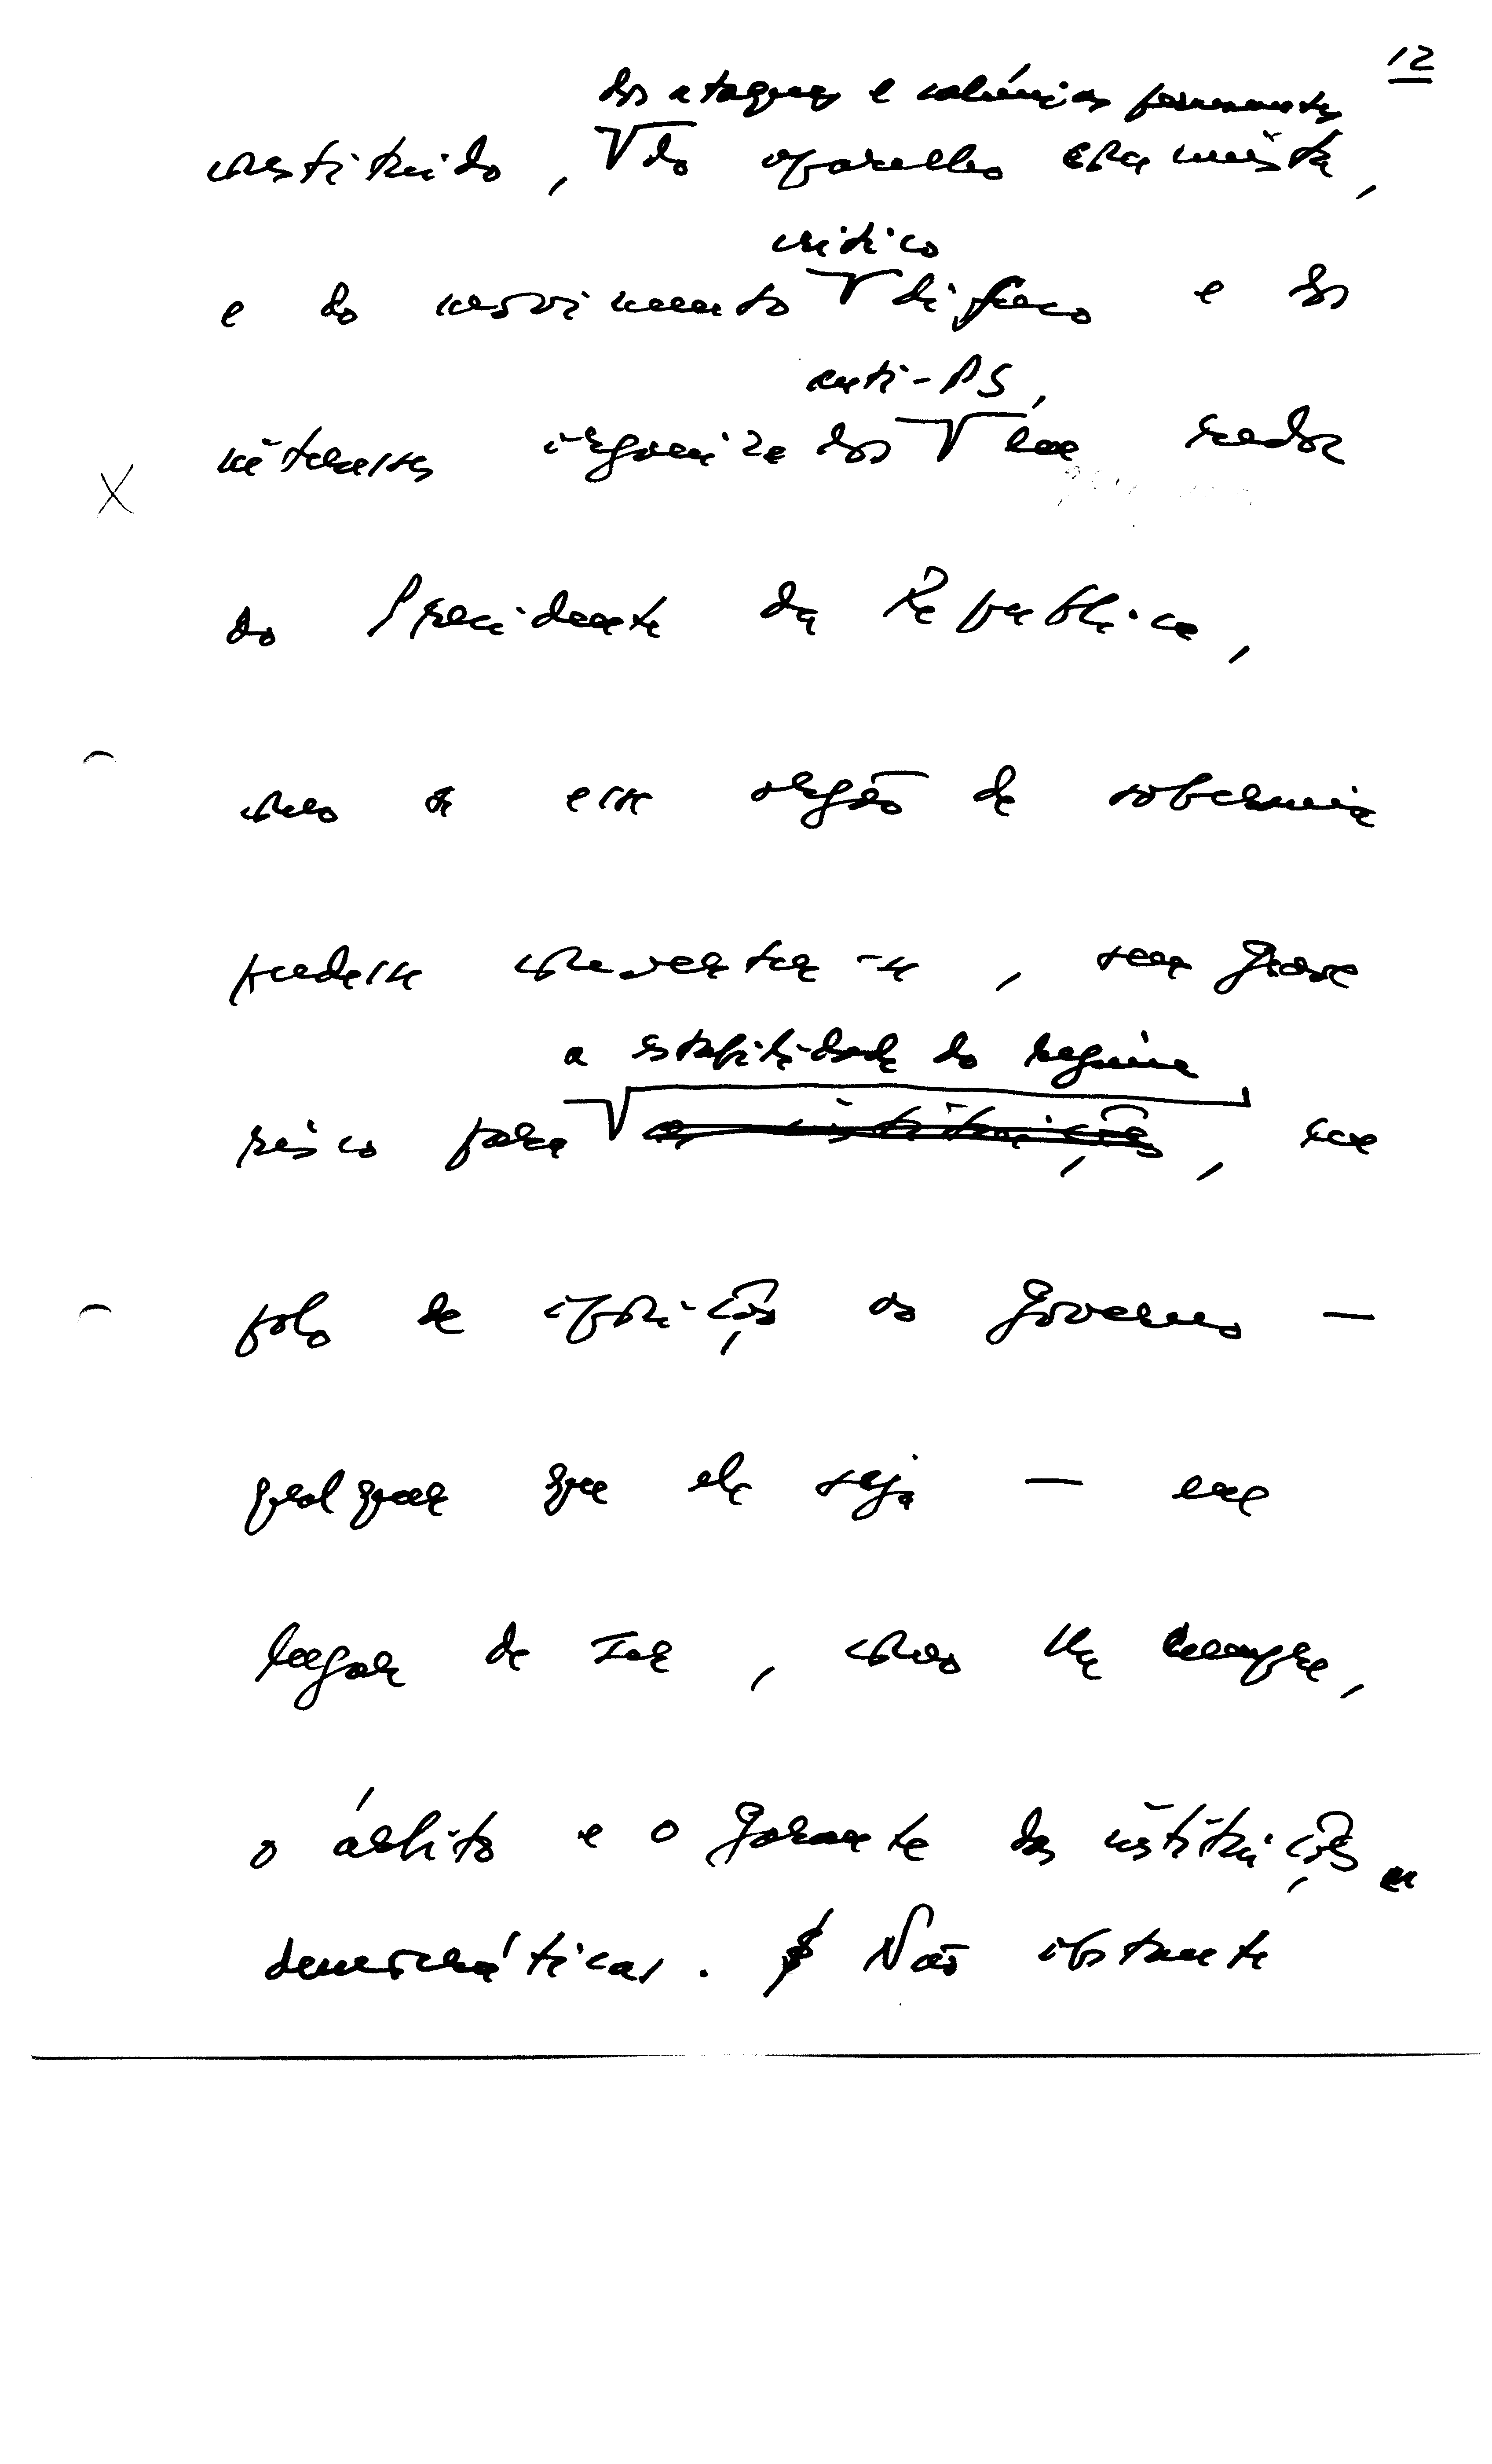 12
dos ataques e calúnias permanentes
constituído, do aparelho comunista,
crítico
e do movimento difuso e dos
anti-PS,
interesses organizados em redor
do Presidente da República,
como se esse orgão de soberania
pudesse converter-se, sem grave
a estabilidade do regime
risco para as instituições, num
polo de oposição ao Governo —
qualquer que ele seja — em
lugar de ser, como lhe cumpre,
o árbito e o garante das instituições
democráticas. Não obstante